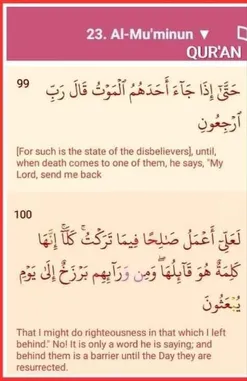 23. Al-Mu'minun ▼
QUR'AN
99
حَتَّىٰٓ إِذَا جَآءَ أَحَدَهُمُ ٱلْمَوْتُ قَالَ رَبِّ
ٱرْجِعُونِ
[For such is the state of the disbelievers], until,
when death comes to one of them, he says, "My
Lord, send me back
100
لَعَلِّىٓ أَعْمَلُ صَـٰلِحًا فِيمَا تَرَكْتُ ۚ كَلَّآ ۚ إِنَّهَا
كَلِمَةٌ هُوَ قَآئِلُهَا ۖ وَمِن وَرَآئِهِم بَرْزَخٌ إِلَىٰ يَوْمِ
يُبْعَثُونَ
That I might do righteousness in that which I left
behind." No! It is only a word he is saying; and
behind them is a barrier until the Day they are
resurrected.